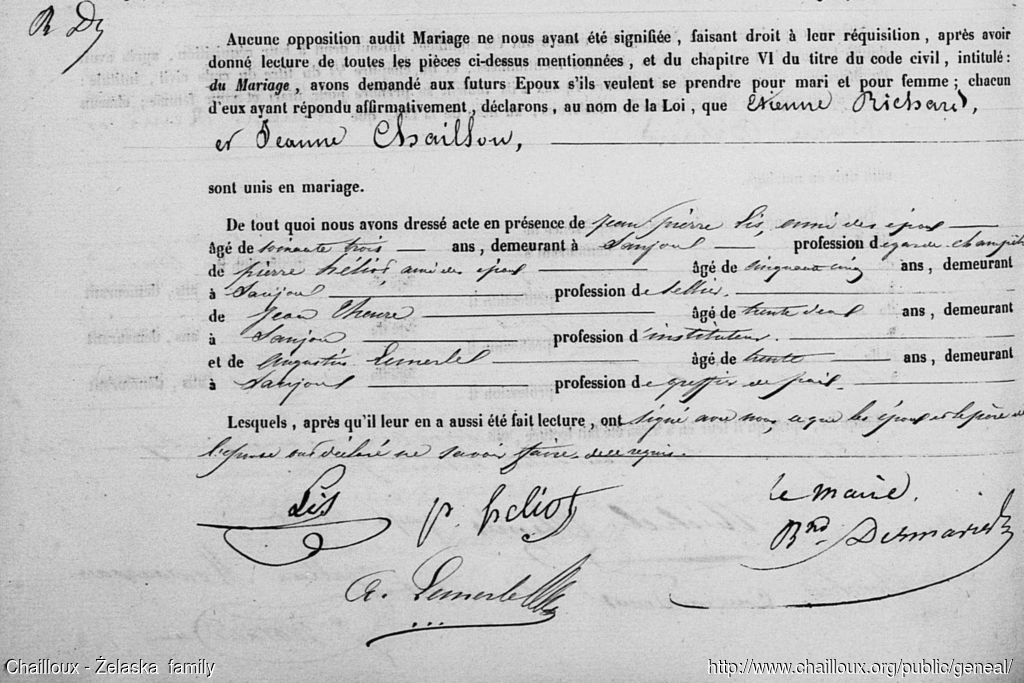 R Dz
Aucune opposition audit Mariage ne nous ayant été signifiée, faisant droit à leur réquisition, après avoir
donné lecture de toutes les pièces ci-dessus mentionnées, et du chapitre VI du titre du code civil, intitulé:
du Mariage, avons demandé aux futurs Epoux s'ils veulent se prendre pour mari et pour femme; chacun
d'eux ayant répondu affirmativement, déclarons, au nom de la Loi, que Etienne Richard,
et Jeanne Chaillou,
sont unis en mariage.
De tout quoi nous avons dressé acte en présence de Jean pierre Lis, ami des époux
âgé de soixante trois ans, demeurant à Saujon profession de garde champêtre
de pierre héliot, ami des époux âgé de cinquante cinq ans, demeurant
à Saujon profession de sellier.
de Jean âgé de trente deux ans, demeurant
à Saujon profession d'instituteur.
et de Augustin Lemerle âgé de trente ans, demeurant
à Saujon profession de greffier de paix.
Lesquels, après qu'il leur en a aussi été fait lecture, ont signé avec nous, ce que les époux et le père de
l'épouse ont déclaré ne savoir faire de ce requis.
Lis p. heliot le maire.
Bnd. Desmarie
A. Lemerle
Chailloux - Żelaska family http://www.chailloux.org/public/geneal/